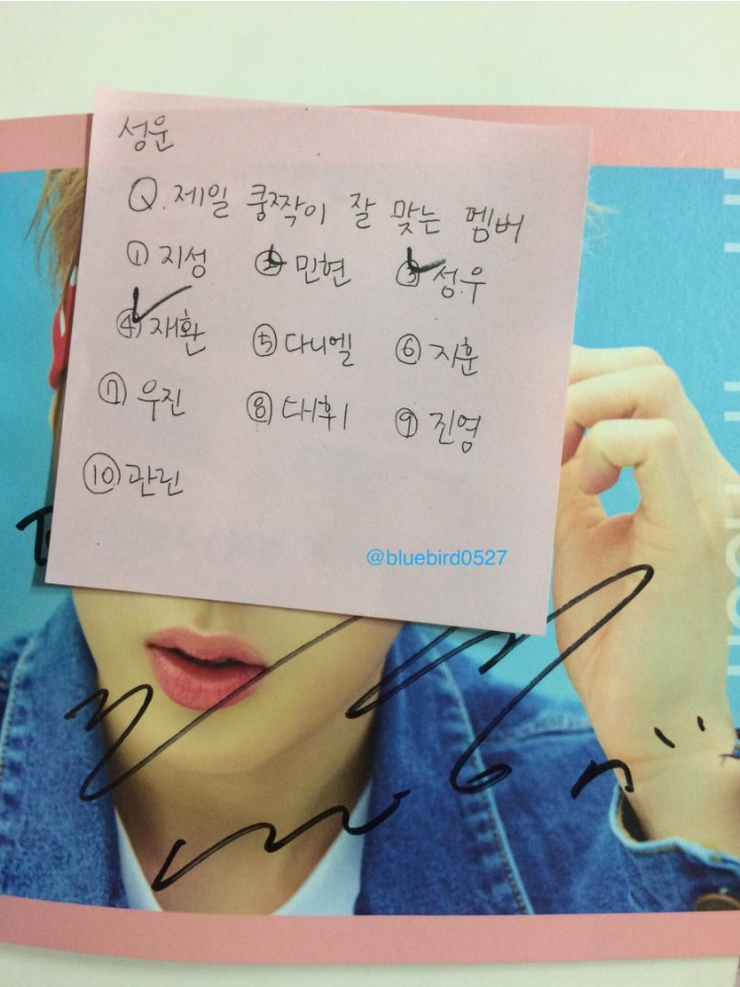 성운
Q. 제일 쿵짝이 잘 맞는 멤버
① 지성 ② 민현 ③ 성우
④ 재환 ⑤ 다니엘 ⑥ 지훈
⑦ 우진 ⑧ 대휘 ⑨ 진영
⑩ 관린
@bluebird0527